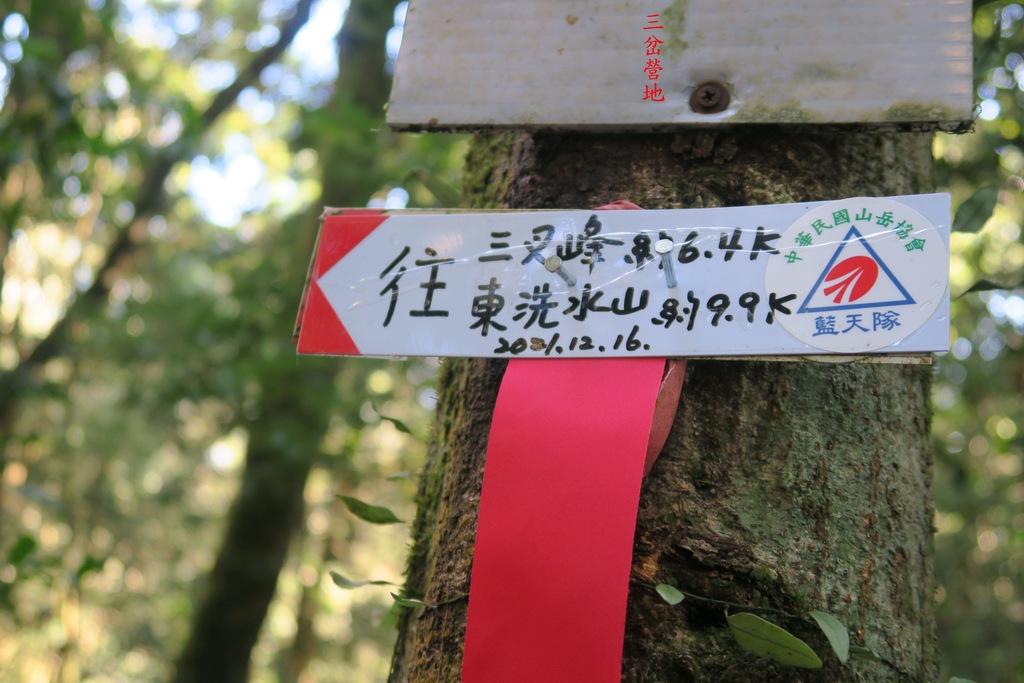 三岔營地
往
三叉峰 約6.4K
東洗水山 約9.9K
2021.12.16.
中華民國山岳協會
藍天隊